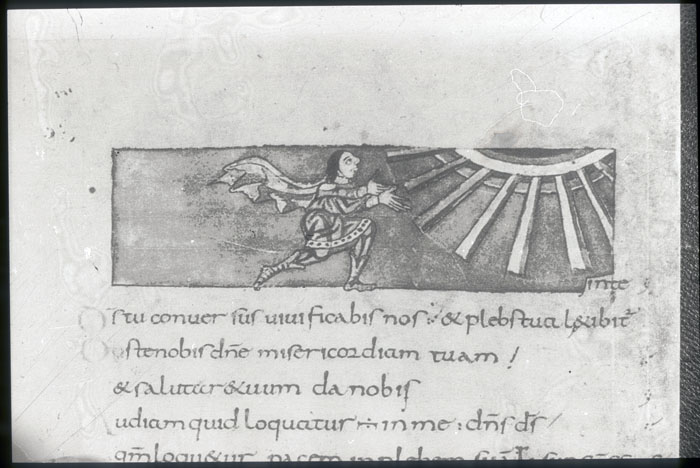 inte
Dstu conversus vivificabis nos : & plebs tua l&abit
Ostenobis dne misericordiam tuam /
& salutar&uum da nobis
udiam quid loquatur ÷ in me : dns ds
qm loqu&ur pacem in plebem